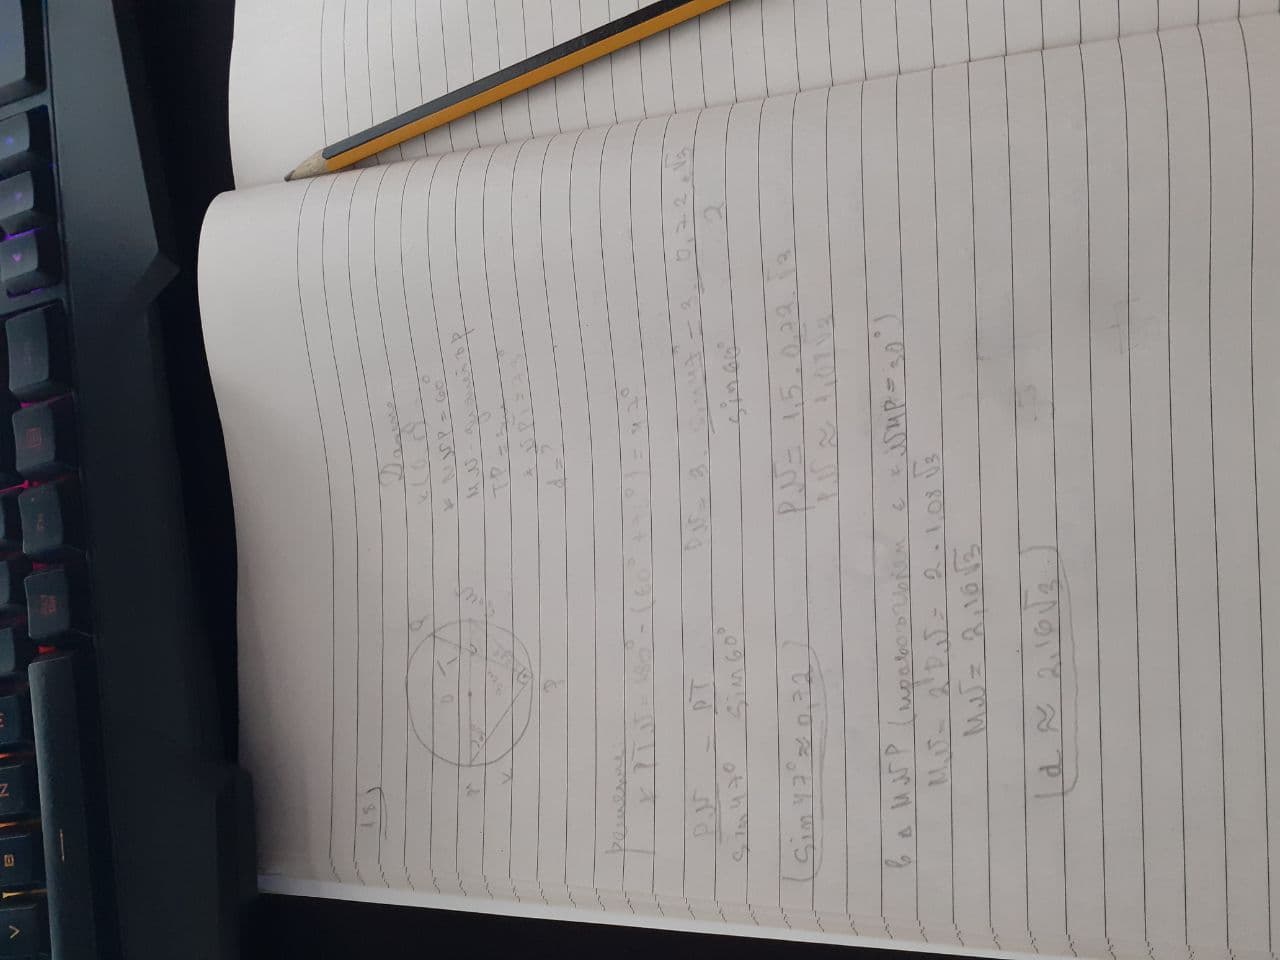 18)
Дано
k(O, R)
∢MNP = 60°
MN - диаметър
TP = 3
d = ?
Решение
∢PTN = 180° - (60° + 73°) = 47°
PN/sin47° = PT/sin60°
PN = 3 . sin47°/sin60° = 3 . 0,72 . √3/2
(sin 47° ≈ 0,72)
PN = 1,5 . 0,72 . √3
PN ≈ 1,08√3
в △ MNP (правоъгълен с ∢NMP = 30°)
MN = 2PN = 2 . 1,08√3
MN = 2,16√3
d ≈ 2,16√3